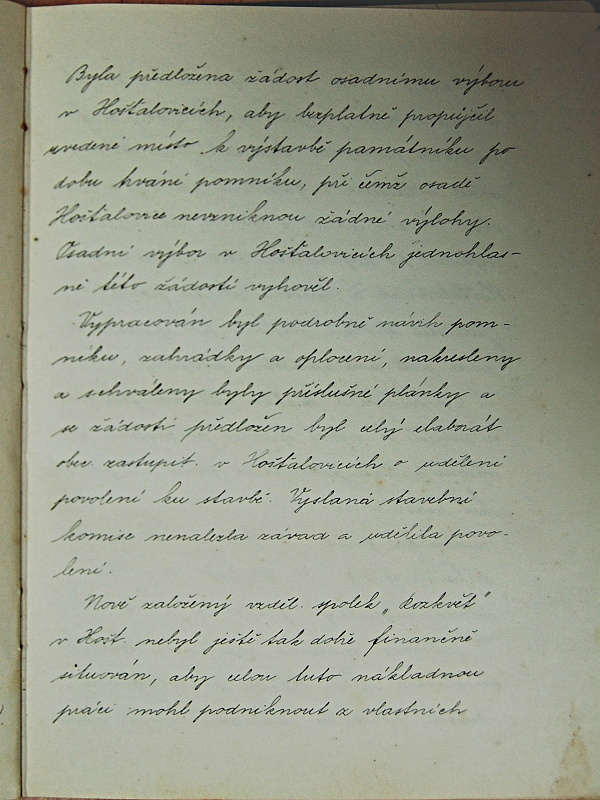 Byla předložena žádost osadnímu výboru
v Hošťalovicích, aby bezplatně propůjčil
uvedené místo k výstavbě památníku po
dobu trvání pomníku, při čemž osadě
Hošťalovice nevzniknou žádné výlohy.
Osadní výbor v Hošťalovicích jednohlas-
ně této žádosti vyhověl.
Vypracován byl podrobně návrh pom-
níku, zahrádky a oplocení, nakresleny
a schváleny byly příslušné plánky a
se žádostí předložen byl celý elaborát
obec. zastupit. v Hošťalovicích o udělení
povolení ku stavbě. Vyslaná stavební
komise nenalezla závad a udělila povo-
lení.
Nově založený vzděl. spolek „Rozkvět"
v Hošt. nebyl ještě tak dobře finančně
situován, aby celou tuto nákladnou
práci mohl podniknout z vlastních